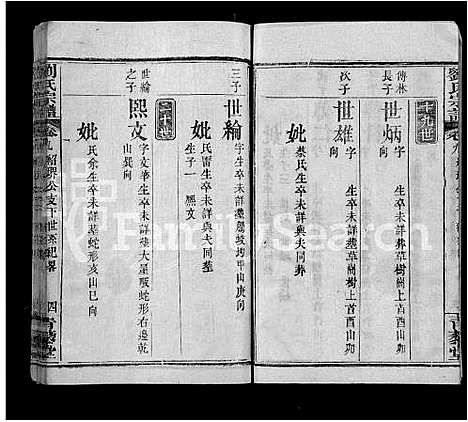 十九世
傳林
長子
世炳
字 生卒未詳葬草樹榭上首酉山卯
向
次子
世雄
字 生卒未詳葬草榭上首酉山卯
向
妣
蔡氏生卒未詳與夫同葬
三子
世綸
字 生卒未詳 甲山庚向
妣
氏雷生卒未詳與夫同葬
生子一 熙文
二十世
世綸
之子
熙文
字文華生卒未詳 大屋 蛇形右邊乾
山巽向
妣
氏余生卒未詳葬蛇形亥山巳向
劉氏宗譜
卷九 紹 公支下世系紀畧
四
青藜堂
FamilySearch